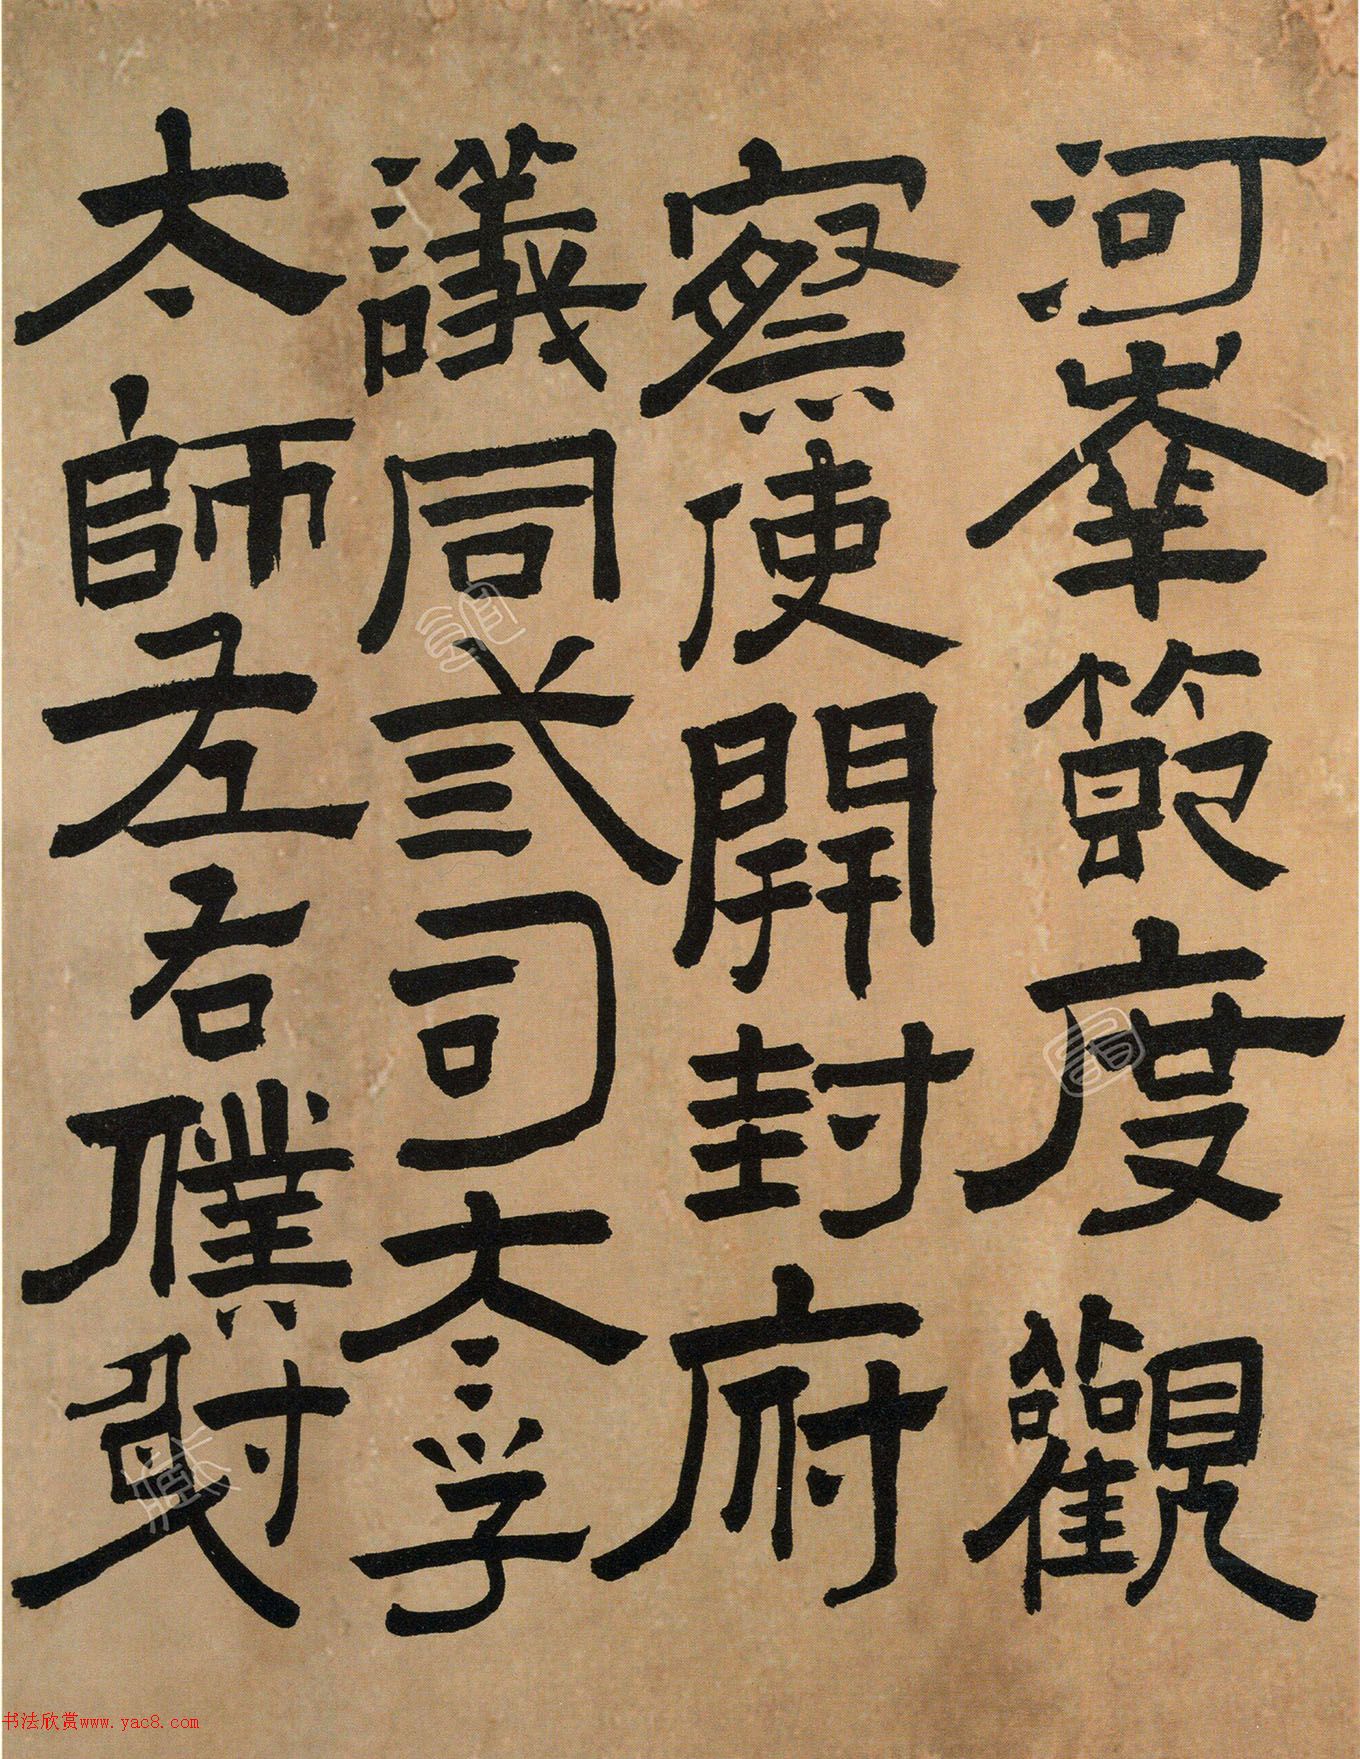 河崋節度觀
察使開封府
議同弎司太孚
太師左右僕射
书法欣赏www.yac8.com